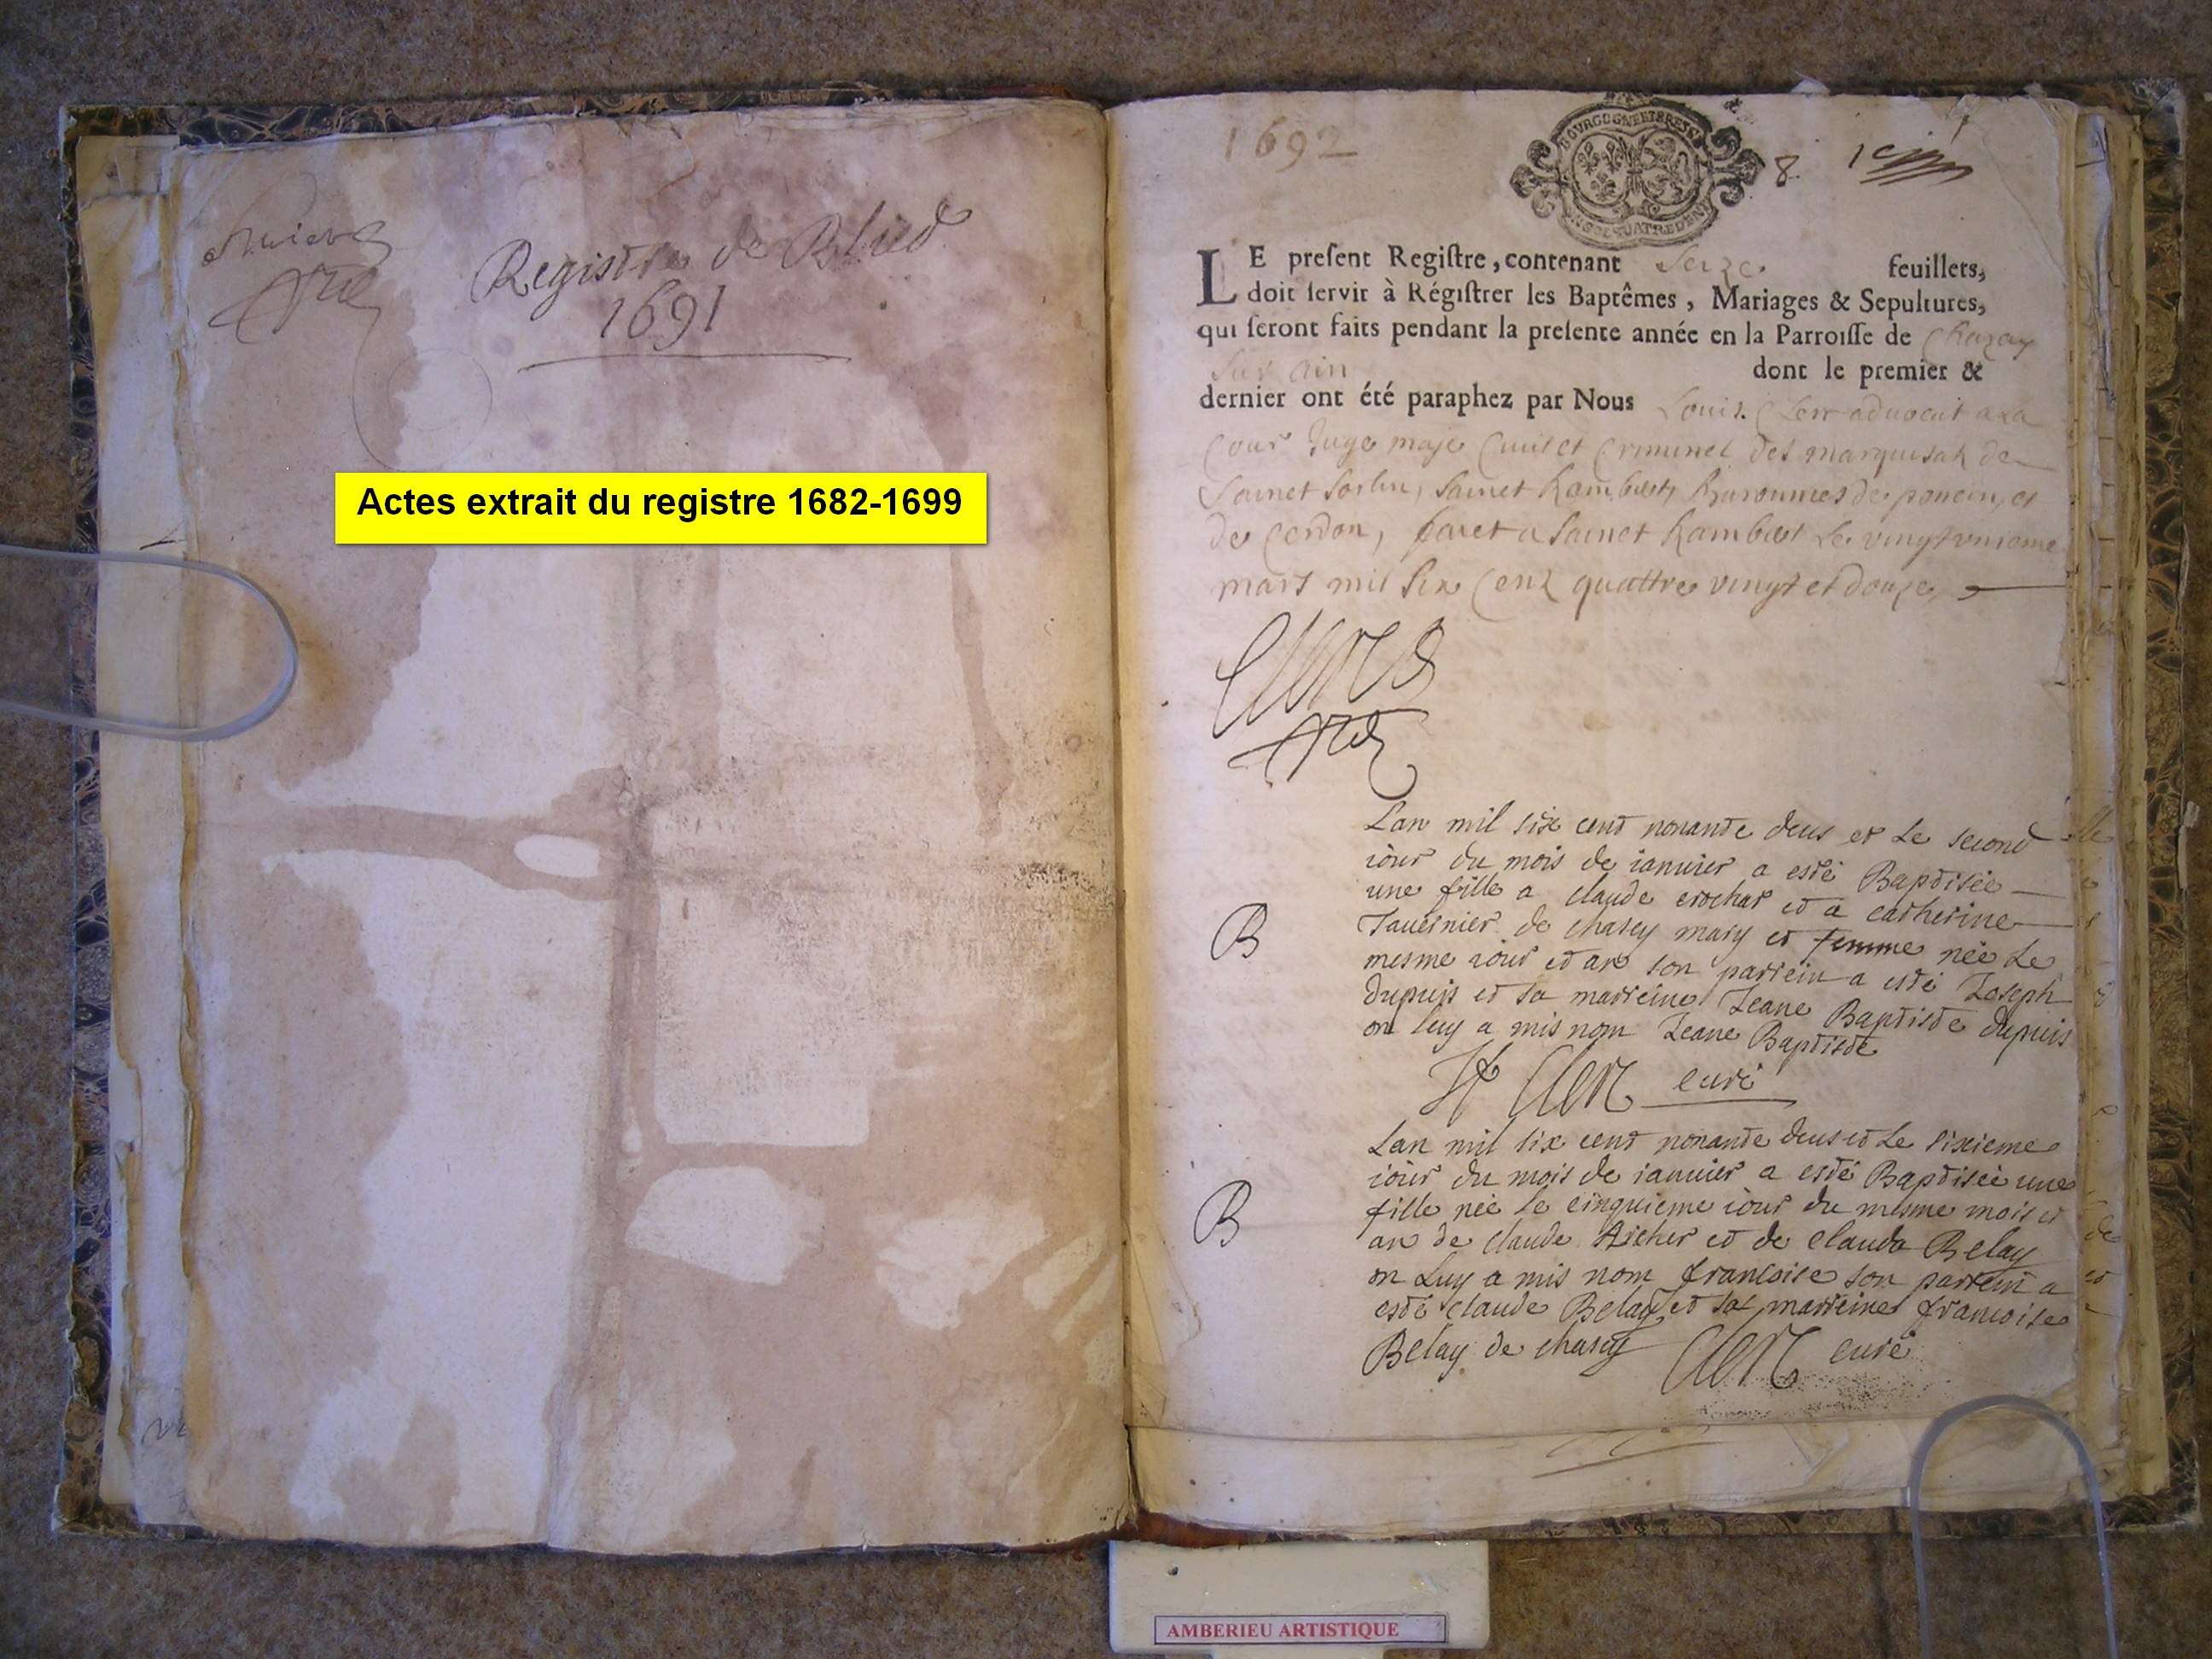 Registre de Blied
1691
Actes extrait du registre 1682-1699
1692
BOVRGOGNE ET BRESSE
QUATRE DEN
8.
LE present Registre, contenant seize feuillets,
doit servir à Régistrer les Baptêmes, Mariages & Sepultures,
qui seront faits pendant la presente année en la Parroisse de Chazay
sur ain dont le premier &
dernier ont été paraphez par Nous Louis Clerc advocat a la
Cour Juge maje Civil et Criminel des marquisats de
Sainct Sorlin, Sainct Rambert, baronnies de poncin, et
de Cerdon, faict a Sainct Rambert Le vingt unieme
mars mil six Cens quattre vingt et douze
Lan mil six cent nonante deus et Le second
iour du mois de ianvier a esté Baptisée
une fille a claude crochat et a catherine
Tavernier de chasey mary et femme née Le
mesme iour et an son parrein a esté Joseph
dupuis et sa marreine Jeane Baptiste dupuis
on luy a mis nom Jeane Baptiste
B
Clerc curé
Lan mil six cent nonante deus et Le sixieme
iour du mois de ianvier a esté Baptisée une
fille née Le cinquieme iour du mesme mois et
an de claude Archer et de clauda Belay
B
on Luy a mis nom francoise son parrein a
esté claude Belay et sa marreine francoise
Belay de chasey Clerc curé
AMBERIEU ARTISTIQUE